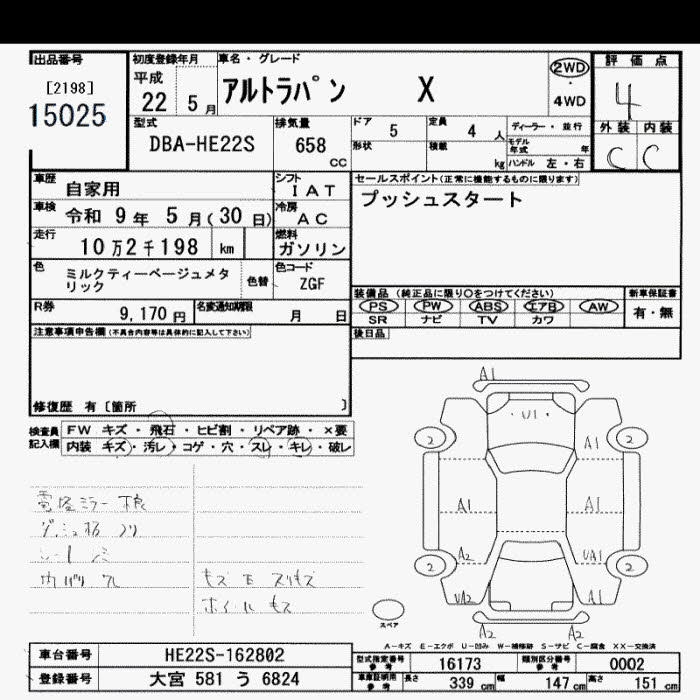 出品番号
[2198]
15025
初度登録年月
平成
22 5月
車名・グレード
アルトラパン X
2WD
・
4WD
評価点
4
外装 内装
C C
型式
DBA-HE22S
排気量
658
CC
ドア
5
定員
4 人
ディーラー・並行
形状
積載
kg
モデル年式 年
ハンドル 左・右
車歴
自家用
シフト
IAT
車検
令和 9年 5月(30日)
冷房
AC
走行
10万2千198 km
燃料
ガソリン
色
ミルクティーベージュメタリック
色替
色コード
ZGF
R券
9,170円
名変通知期限
月 日
セールスポイント(正常に機能するものに限ります)
プッシュスタート
装備品 (純正品に限り○をつけてください)
PS PW ABS エアB AW
SR ナビ TV カワ
新車保証書
有・無
後日品
注意事項申告欄(不具合内容等は具体的に記入して下さい)
修復歴 有〔箇所 〕
検査員記入欄
FW キズ・飛石・ヒビ割・リペア跡・×要
内装 キズ・汚レ・コゲ・穴・スレ・キレ・破レ
電格ミラー
シート
内バリ
キズ スリキズ
ホイール キズ
A1
U1
2
2
A1
A1
A1
A2
UA1
2
2
UA2
A1
A2
A2
スペア
A-キズ E-エクボ U-凹み W-補修跡 S-サビ C-腐食 XX-交換済
車台番号
HE22S-162802
登録番号
大宮 581 う 6824
型式指定番号
参考
16173
類別区分番号
参考
0002
車庫証明用
参考
長さ 339 cm
幅 147 cm
高さ 151 cm